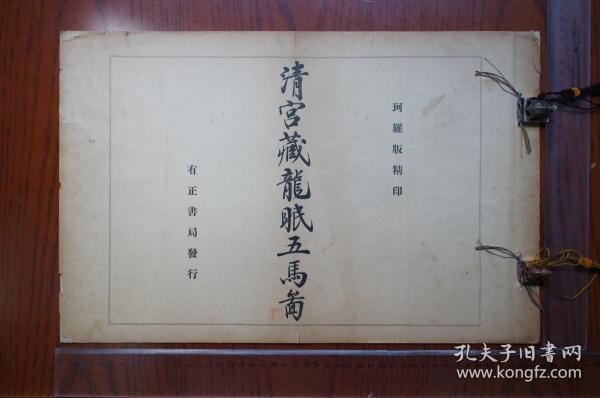 珂羅版精印
清宮藏龍眠五馬啚
有正書局發行
孔夫子旧書网
www.kongfz.com